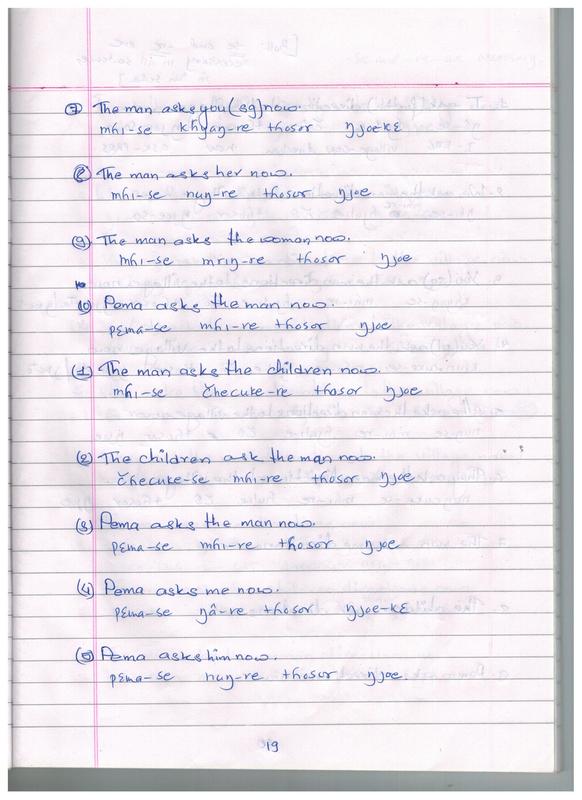 7) The man asks you (sg) now.
mhi-se khyaŋ-re thosor ŋjoe-kɛ
8) The man asks her now.
mhi-se nuŋ-re thosor ŋjoe
9) The man asks the woman now.
mhi-se mriŋ-re thosor ŋjoe
10) Pema asks the man now.
pɛma-se mhi-re thosor ŋjoe
(1) The man asks the children now.
mhi-se čhecuke-re thosor ŋjoe
(2) The children ask the man now.
čhecuke-se mhi-re thosor ŋjoe
(3) Pema asks the man now.
pɛma-se mhi-re thosor ŋjoe
(4) Pema asks me now.
pɛma-se ŋâ-re thosor ŋjoe-kɛ
(5) Pema asks him now.
pɛma-se nuŋ-re thosor ŋjoe.
19